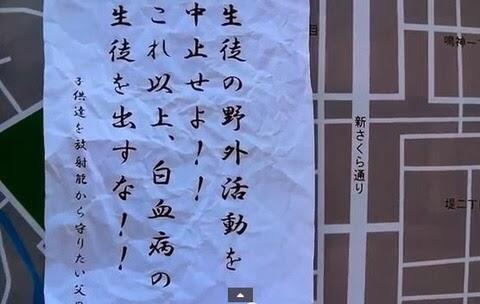 生徒の野外活動を
中止せよ！！
これ以上、白血病の
生徒を出すな！！
子供達を放射能から守りたい父
鳴神一
新さくら通り
堤二丁